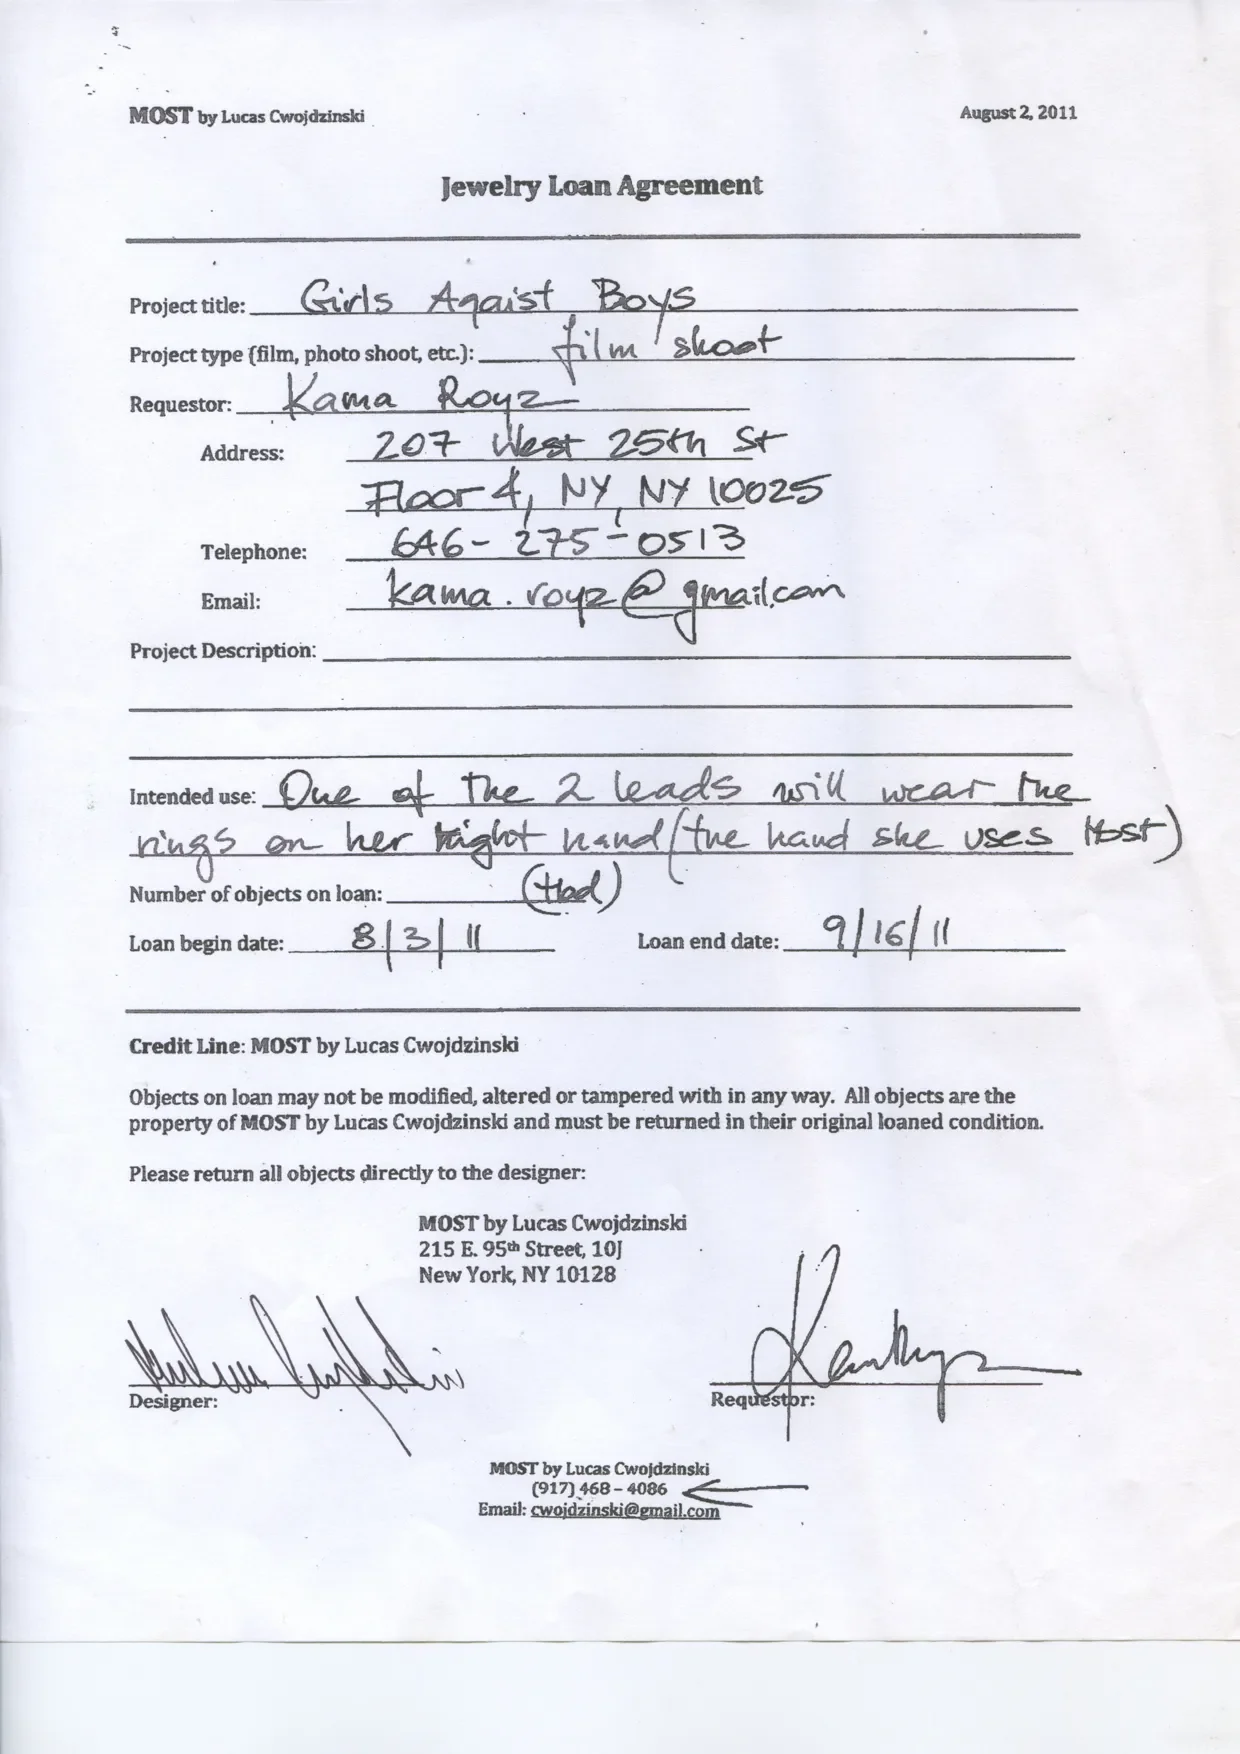 MOST by Lucas Cwojdzinski
August 2, 2011
Jewelry Loan Agreement
Project title: Girls Agaist Boys
Project type (film, photo shoot, etc.): film shoot
Requestor: Kama Royz
Address: 207 West 25th St
Floor 4, NY, NY 10025
Telephone: 646-275-0513
Email: kama.royz@gmail.com
Project Description:
Intended use: One of the 2 leads will wear the
rings on her right hand (the hand she uses most)
Number of objects on loan: (tbd)
Loan begin date: 8/3/11 Loan end date: 9/16/11
Credit Line: MOST by Lucas Cwojdzinski
Objects on loan may not be modified, altered or tampered with in any way. All objects are the
property of MOST by Lucas Cwojdzinski and must be returned in their original loaned condition.
Please return all objects directly to the designer:
MOST by Lucas Cwojdzinski
215 E. 95th Street, 10J
New York, NY 10128
Designer: Requestor:
MOST by Lucas Cwojdzinski
(917) 468 – 4086
Email: cwojdzinski@gmail.com